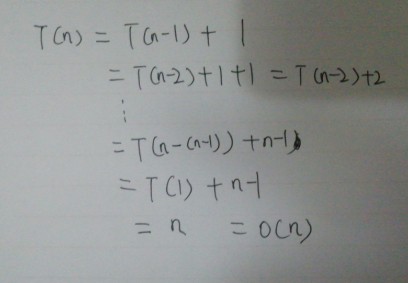 T(n) = T(n-1) + 1
= T(n-2)+1+1 = T(n-2)+2
⋮
= T(n-(n-1)) + n-1
= T(1) + n-1
= n = O(n)